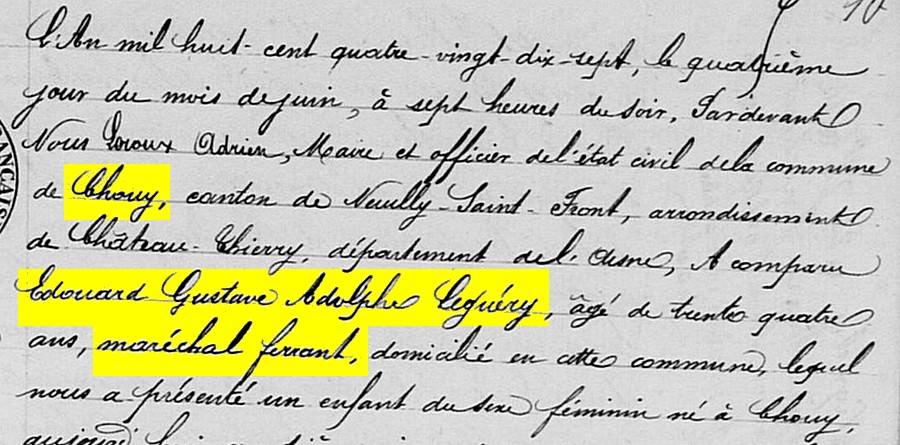 10
L'An mil huit-cent quatre-vingt-dix-sept, le quatrième
jour du mois de juin, à sept heures du soir, Pardevant
Nous Leroux Adrien, Maire et officier de l'état civil de la commune
de Chouy, canton de Neuilly-Saint-Front, arrondissement
de Château-Thierry, département de l'Aisne, A comparu
Edouard Gustave Adolphe Leguéry, âgé de trente quatre
ans, maréchal ferrant, domicilié en cette commune, lequel
nous a présenté un enfant du sexe féminin né à Chouy,
ANÇAIS